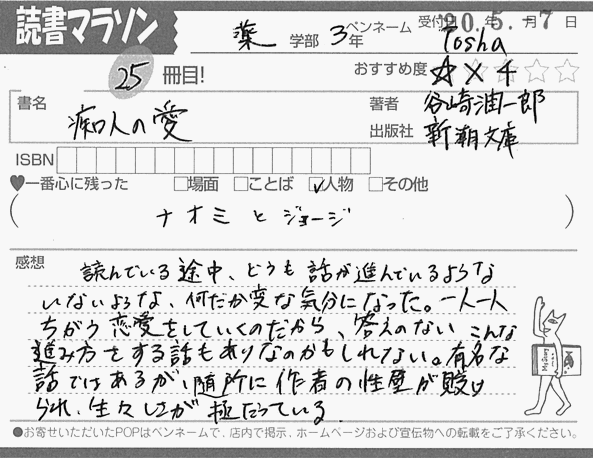 読書マラソン
薬 学部 3年
ペンネーム Tosha
受付日 20.5.-7 年 月 日
25 冊目!
おすすめ度 ☆×4
書名 痴人の愛
著者 谷崎潤一郎
出版社 新潮文庫
ISBN
♥一番心に残った □場面 □ことば ☑人物 □その他
( ナオミとジョージ )
感想
読んでいる途中、どうも話が進んでいるような
いないような、何だか変な気分になった。一人一人
ちがう恋愛をしていくのだから、答えのない こんな
進み方をする話もありなのかもしれない。有名な
話ではあるが、随所に作者の性壁が賤け
られ、生々しさが極だっている
●お寄せいただいたPOPはペンネームで、店内で掲示、ホームページおよび宣伝物への転載をご了承ください。